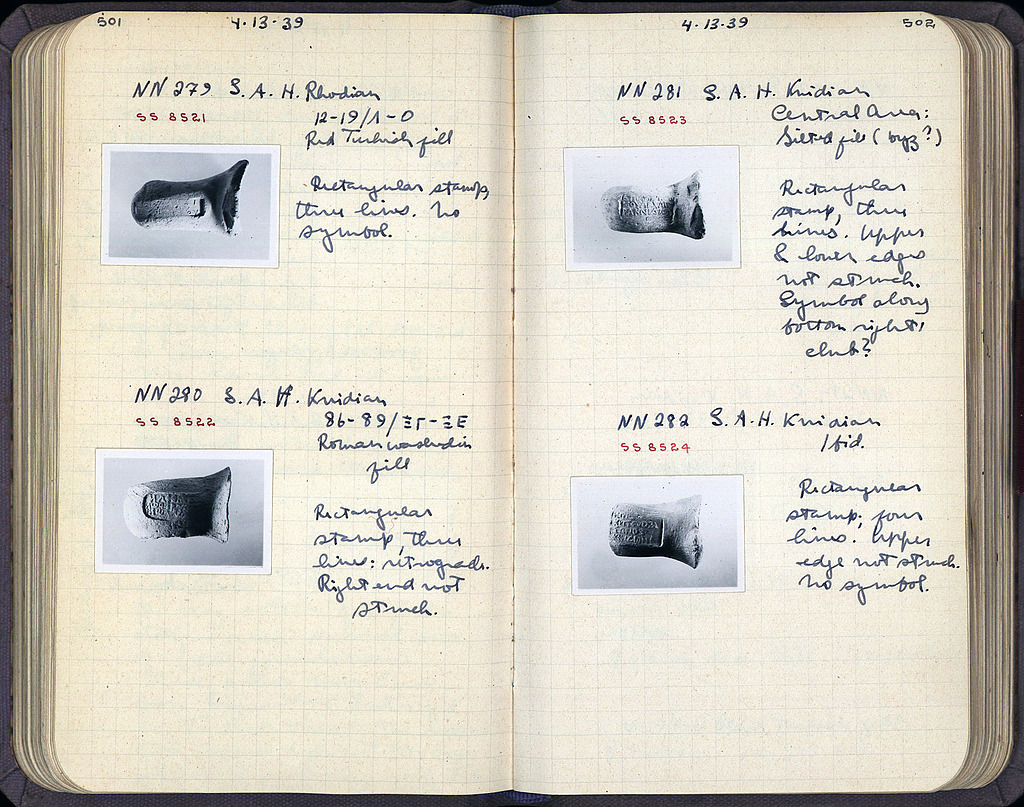 501
4·13·39
NN 279 S. A. H. Rhodian
SS 8521
12-19/Λ-Ο
Red Turkish fill
Rectangular stamp,
three lines. No
symbol.
NN 280 S. A. H. Knidian
SS 8522
86-89/ΞΓ-ΞΕ
Roman washed in
fill
Rectangular
stamp, three
lines: retrograde.
Right end not
struck.
4·13·39
502
NN 281 S. A. H. Knidian
SS 8523
Central Area:
Silted fill (byz?)
Rectangular
stamp, three
lines. Upper
& lower edges
not struck.
Symbol along
bottom right,
club?
NN 282 S. A. H. Knidian
SS 8524
Ibid.
Rectangular
stamp; four
lines. Upper
edge not struck.
No symbol.